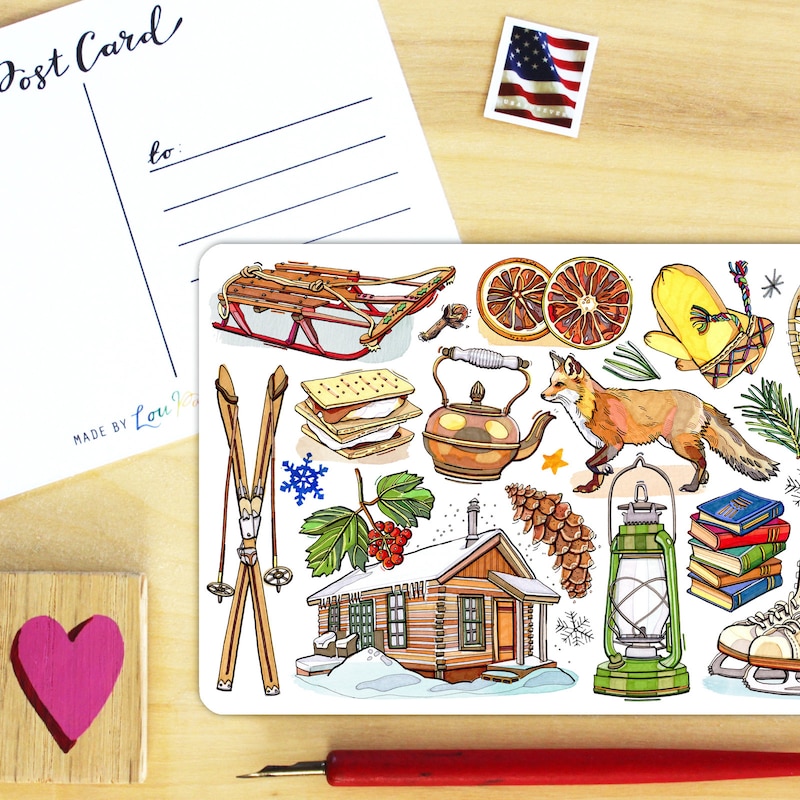 Post Card
to:
MADE BY Lou
USA